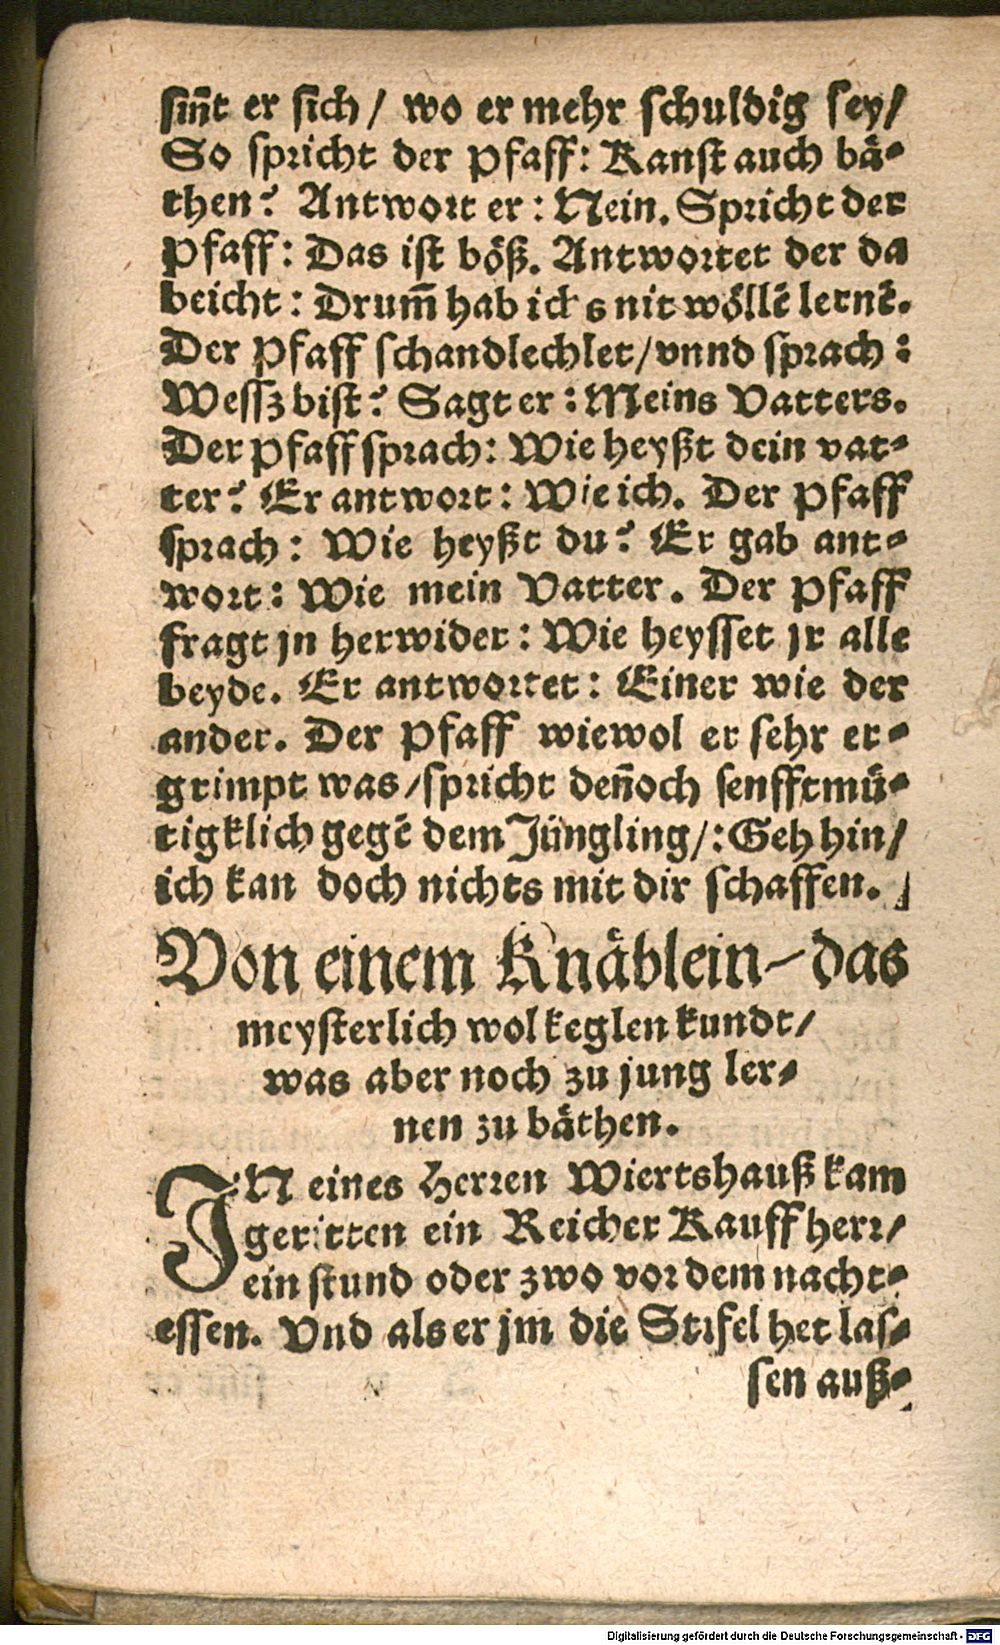 siñt er sich / wo er mehr schuldig sey /
So spricht der Pfaff: Kanst auch bä-
then? Antwort er: Nein. Spricht der
Pfaff: Das ist böß. Antwortet der da
beicht: Drum̃ hab ichs nit wöllẽ lernẽ.
Der Pfaff schandlechlet / vnnd sprach:
Wessz bist? Sagt er: Meins Vatters.
Der Pfaff sprach: Wie heyßt dein vat-
ter? Er antwort: Wie ich. Der Pfaff
sprach: Wie heyßt du? Er gab ant-
wort: Wie mein Vatter. Der Pfaff
fragt jn herwider: Wie heysset jr alle
beyde. Er antwortet: Einer wie der
ander. Der Pfaff wiewol er sehr er-
grimpt was / spricht deñoch senfftmü-
tigklich gegẽ dem Jüngling /: Geh hin /
ich kan doch nichts mit dir schaffen.
Von einem Knäblein / das
meysterlich wol keglen kundt /
was aber noch zu jung ler-
nen zu bäthen.
IN eines Herren Wiertshauß kam
geritten ein Reicher Kauffherr /
ein stund oder zwo vor dem nacht-
essen. Vnd als er jm die Stifel het las-
sen auß-
Digitalisierung gefördert durch die Deutsche Forschungsgemeinschaft - DFG